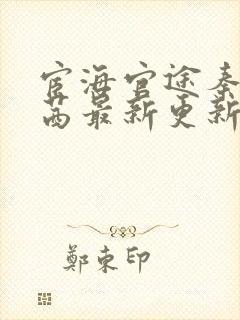 宦海官途秦
茜最新更新
鄭東印